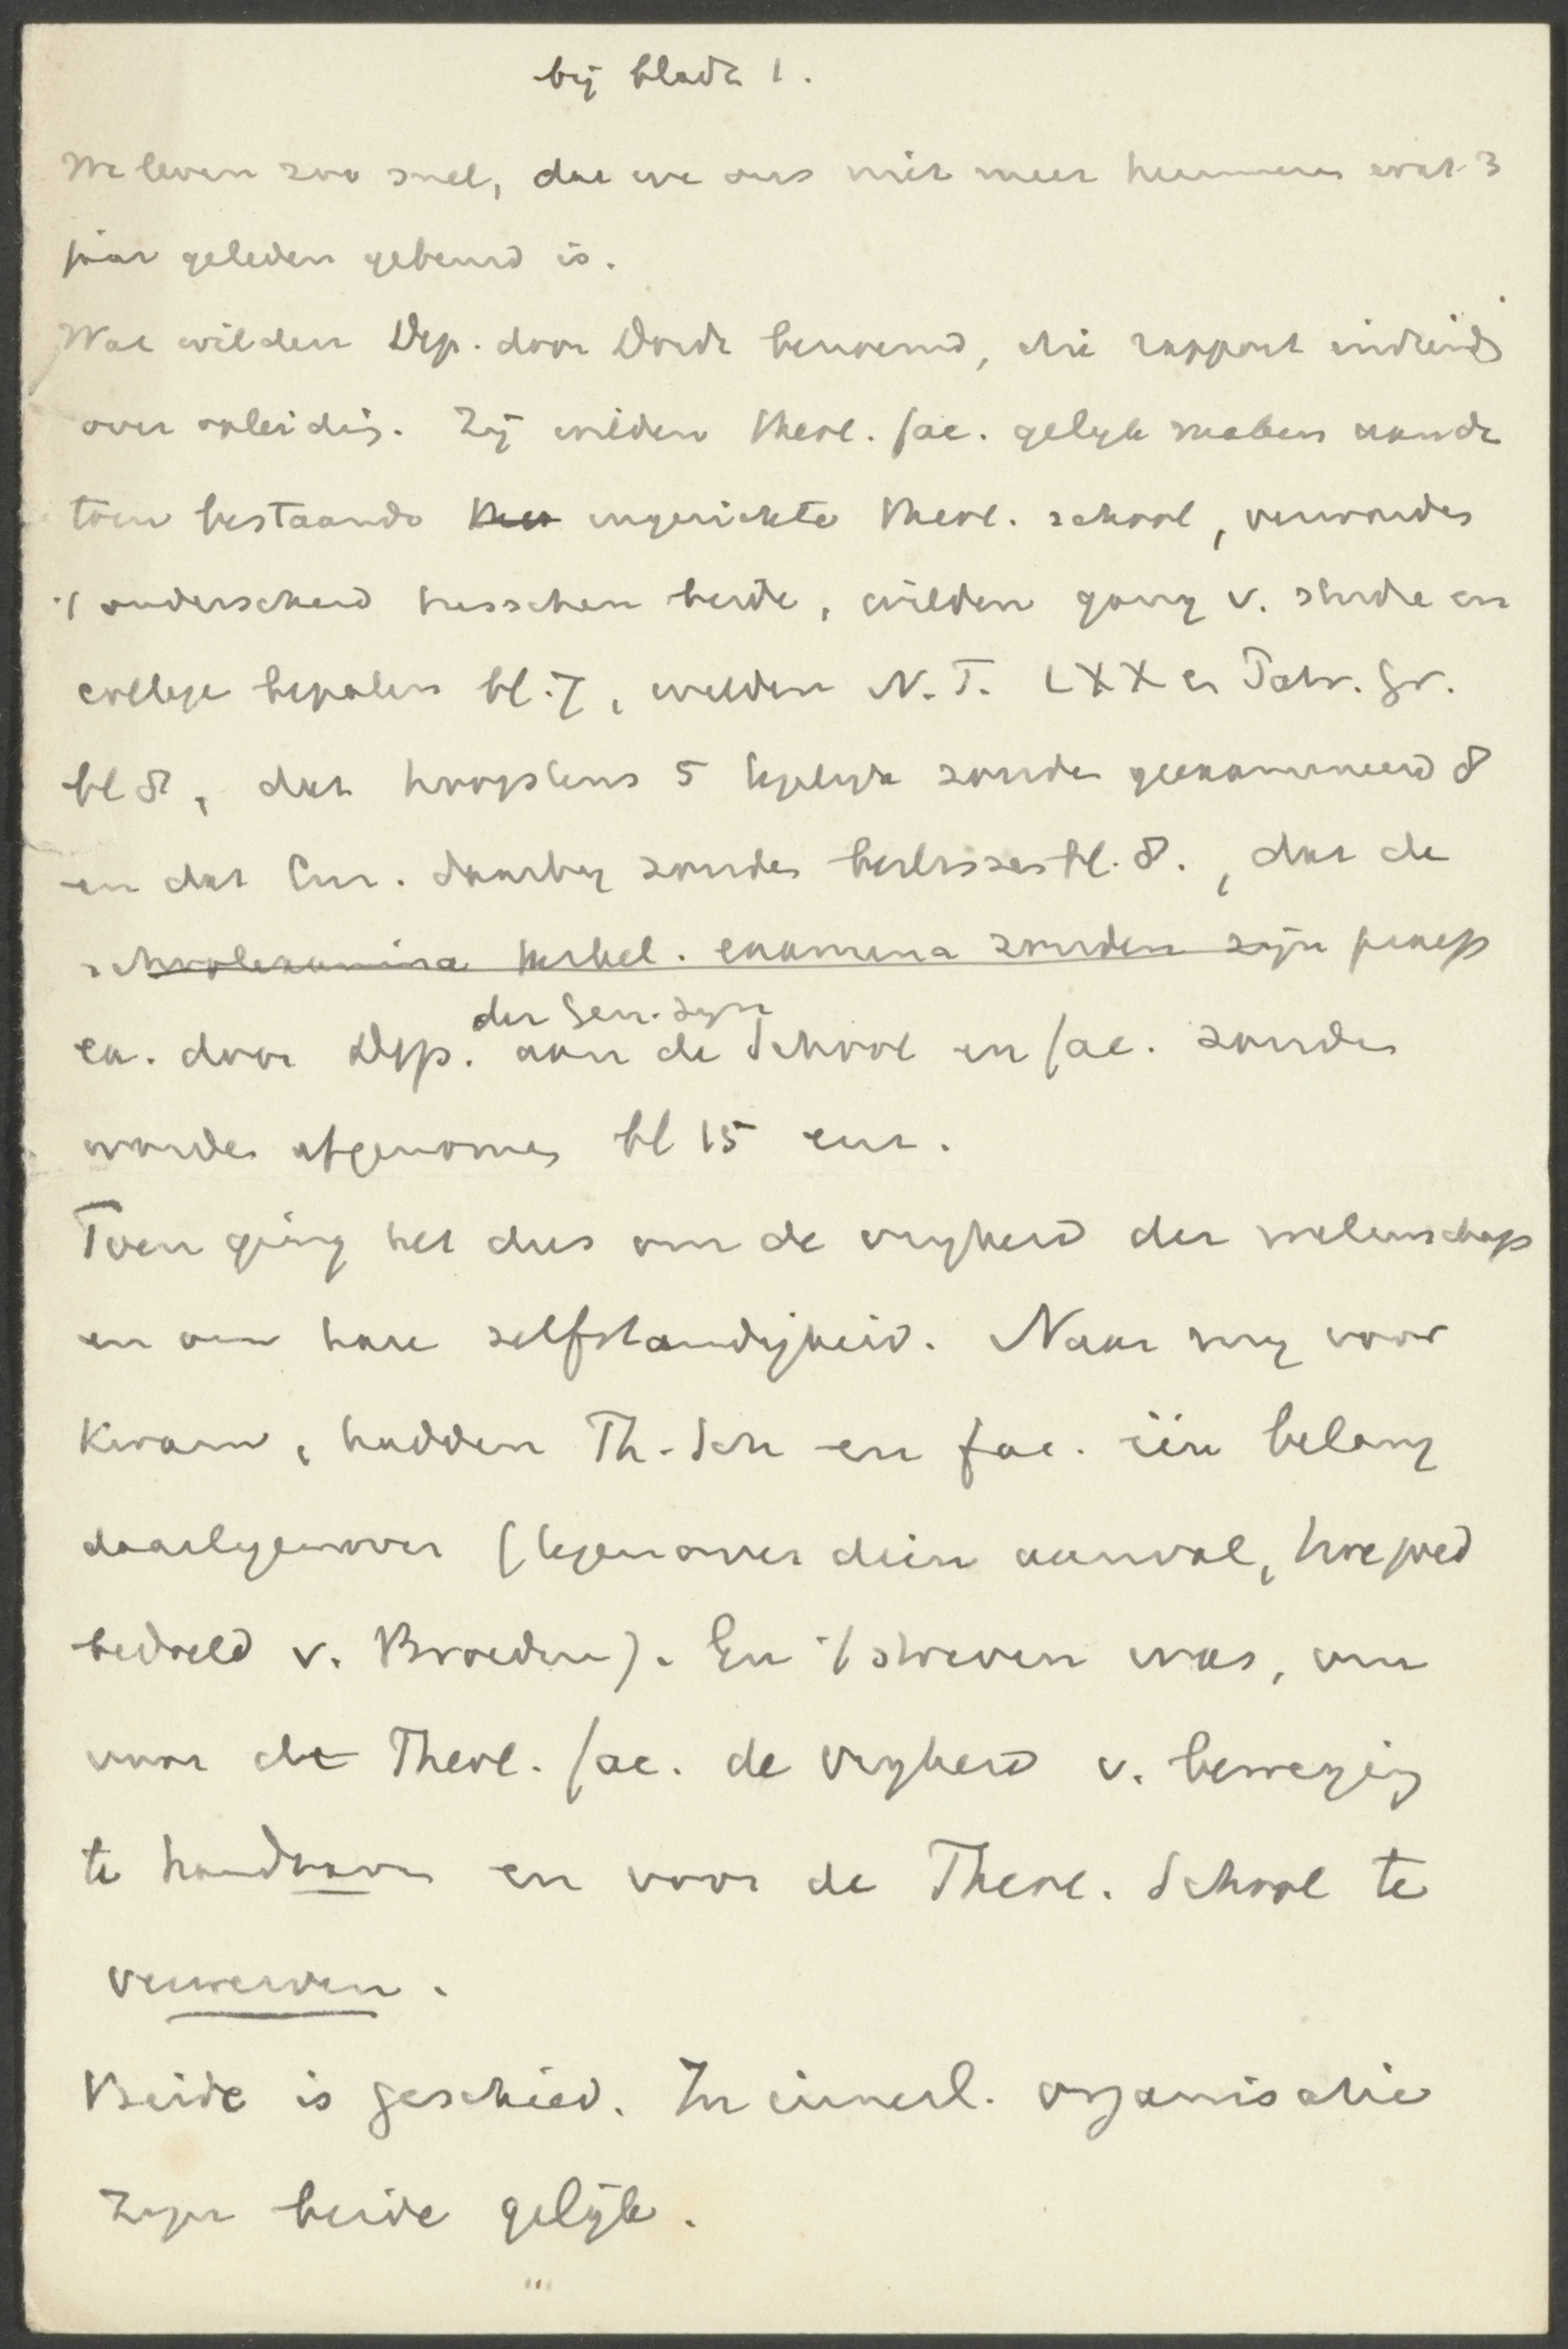 bij bladz 1.
We leven zoo snel, dat we ons niet meer herinneren wat 3
jaar geleden gebeurd is.
Wat wilden Dep. door Dordt benoemd, die rapport indiend
over opleiding. Zij wilden theol. fac. gelijk maken aan de
toen bestaande ingerichte theol. school,
onderscheid tusschen beide, wilden gang v. studie en
college bepalen bl. 7, wilden N.T. LXX en Patr. Gr.
bl 8, dat hoogstens 5 tegelijk zouden geexamineerd 8
en dat Cur. daarbij zouden beslissen bl. 8., dat de
schoolexamina kerkel. examina zouden zijn
ex. door Dep. der Gen. Syn aan de School en fac. zouden
worden afgenomen bl 15 enz.
Toen ging het dus om de vrijheid der wetenschap
en om hare zelfstandigheid. Naar mij voor
kwam, hadden Th. Sch en fac. één belang
daartegenover (tegenover dien aanval, hoe goed
bedoeld v. Broeders). En 't streven was, om
voor de Theol. fac. de vrijheid v. beweging
te handhaven en voor de Theol. School te
verwerven.
Beide is geschied. In innerl. organisatie
zijn beide gelijk.